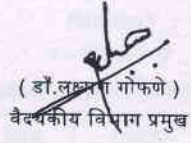 ( डॉ.लक्ष्मण गोफणे )
वैद्यकीय विभाग प्रमुख